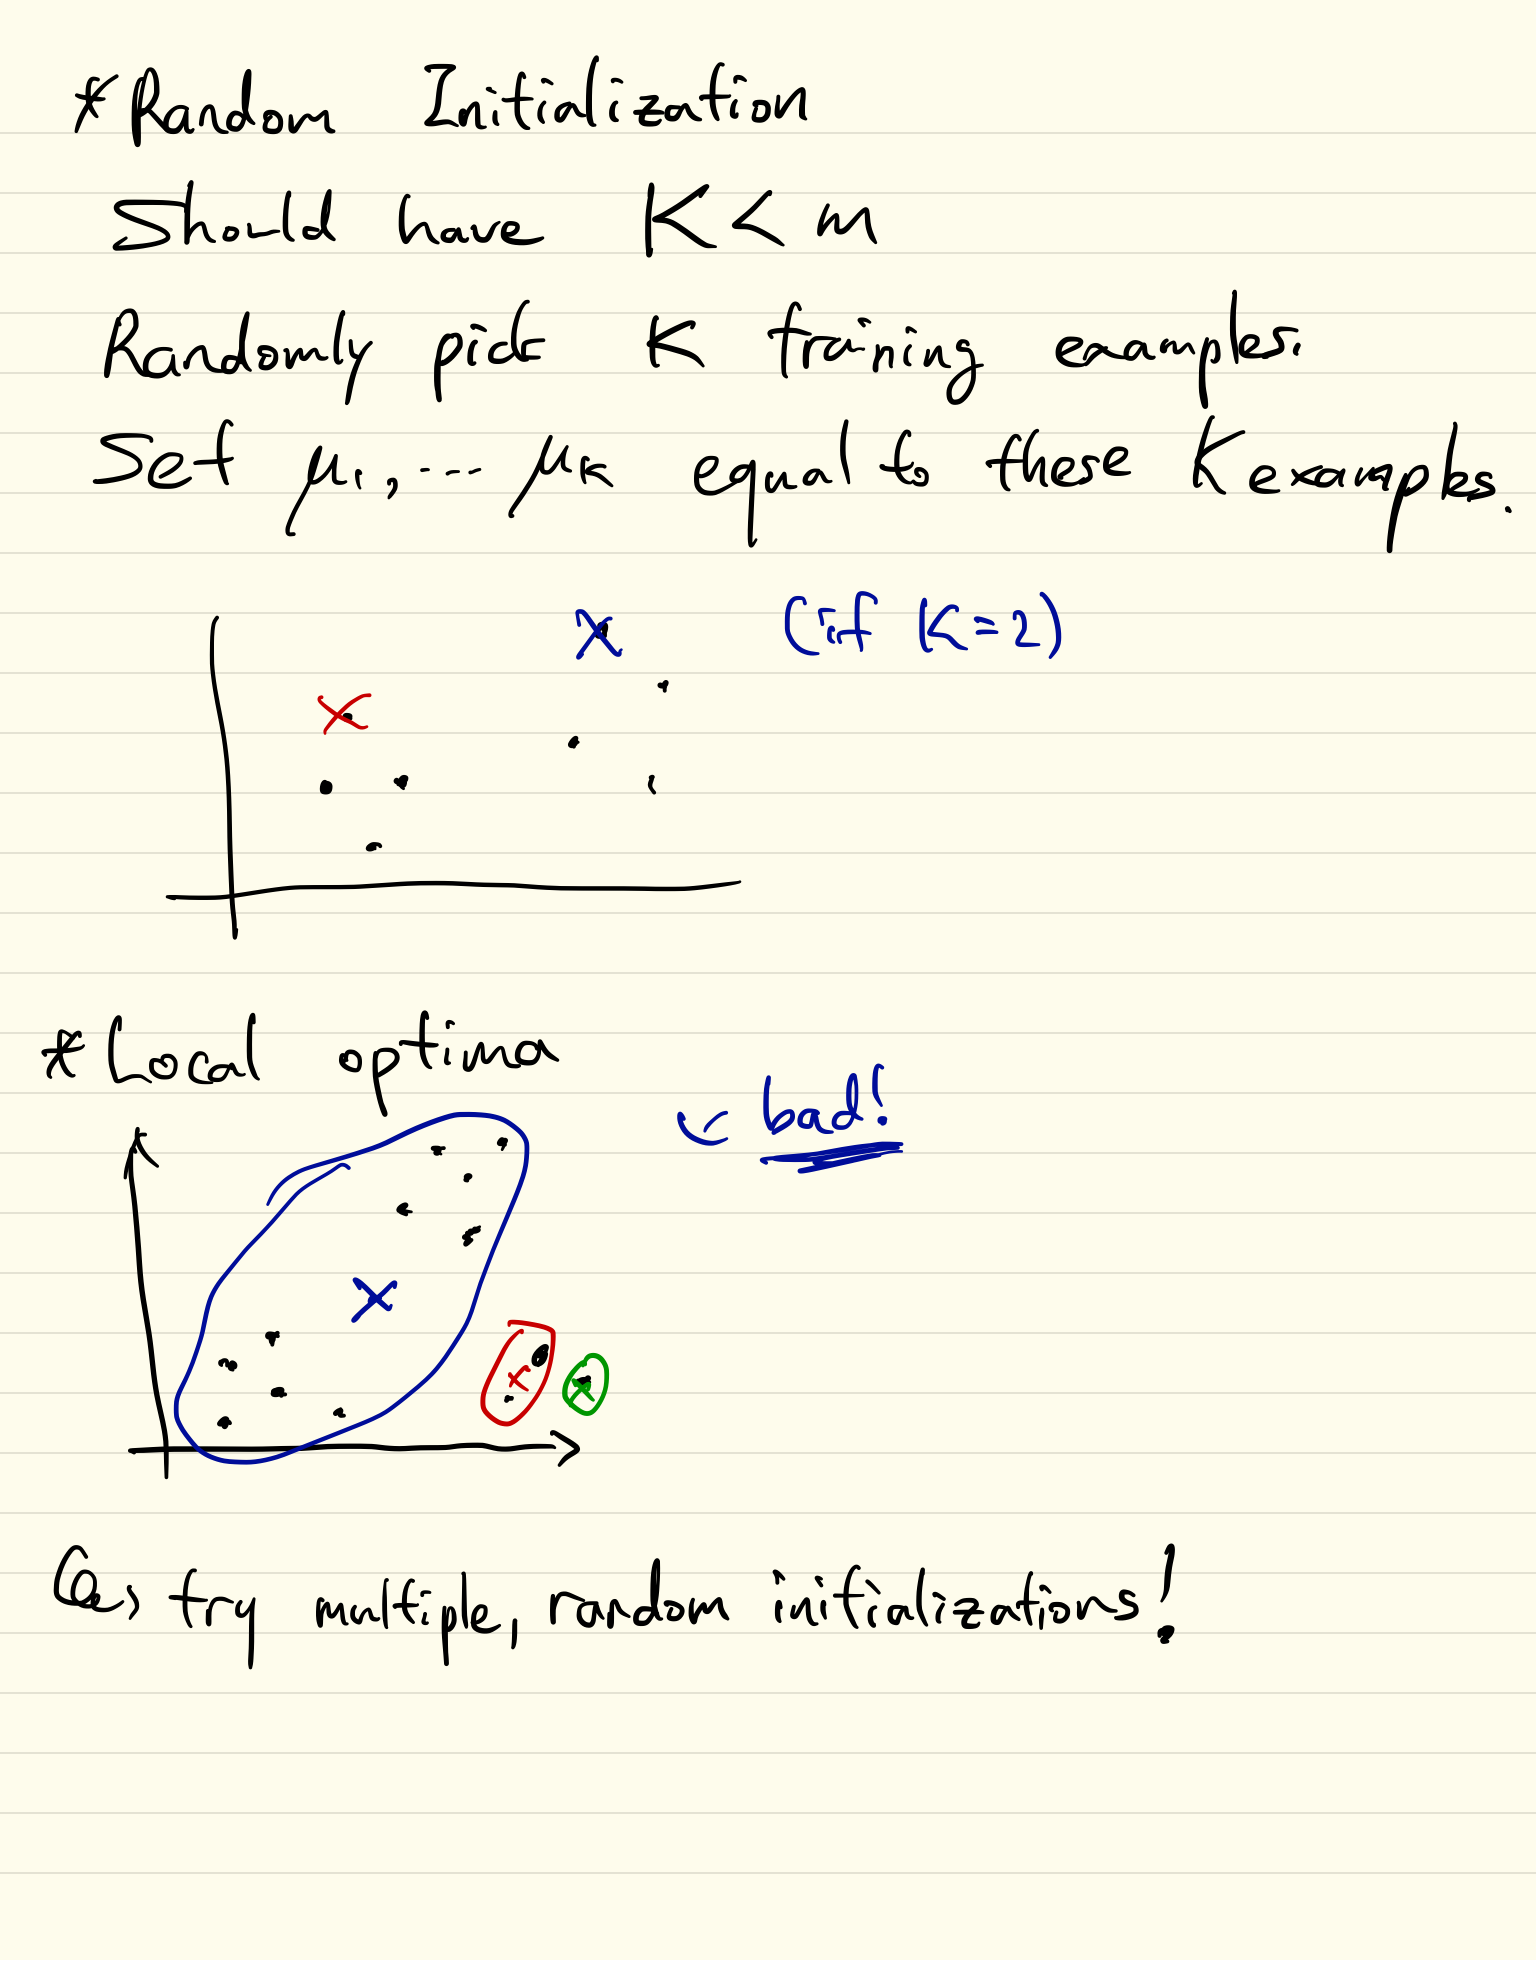 *Random Initialization
Should have K < m
Randomly pick K training examples.
Set μ₁, ... μₖ equal to these K examples.
(if K=2)
*Local optima
bad!
try multiple, random initializations!